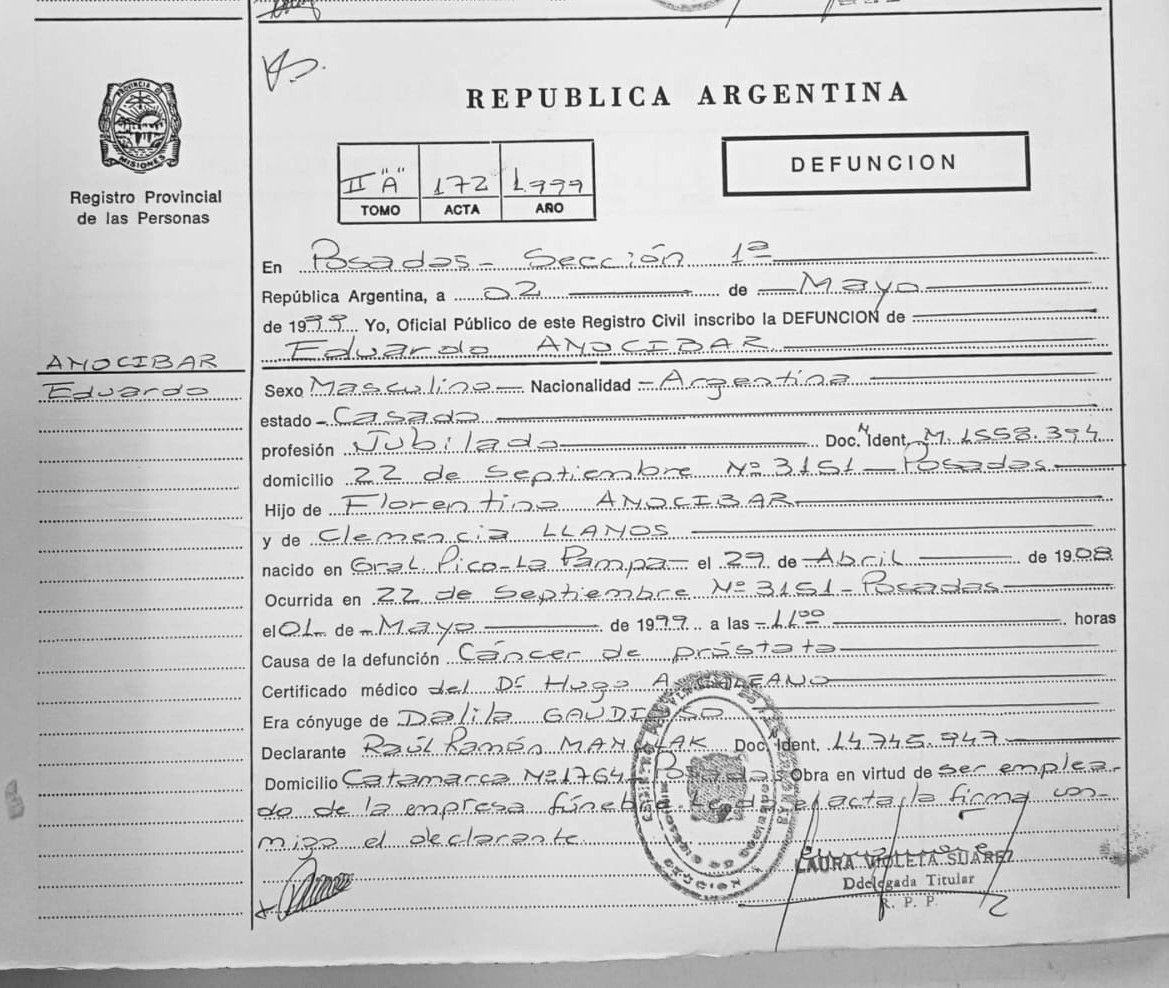 REPUBLICA ARGENTINA
PROVINCIA DE
MISIONES
Registro Provincial
de las Personas
II "A" 172 1.999
TOMO ACTA AÑO
DEFUNCION
En Posadas - Sección 1ª
República Argentina, a 02 de Mayo
de 1999 Yo, Oficial Público de este Registro Civil inscribo la DEFUNCION de
Eduardo ANOCIBAR
ANOCIBAR
Eduardo
Sexo Masculino Nacionalidad Argentina
estado Casado
profesión Jubilado Doc. Ident. M. 1558.394
domicilio 22 de Septiembre Nº 3151 - Posadas
Hijo de Florentino ANOCIBAR
y de Clemencia LLANOS
nacido en Gral. Pico - La Pampa el 29 de Abril de 1908
Ocurrida en 22 de Septiembre Nº 3151 - Posadas
el 01 de Mayo de 1999 a las 11⁰⁰ horas
Causa de la defunción Cáncer de próstata
Certificado médico del Dr Hugo A.
Era cónyuge de Dalila
Declarante Raúl Ramón Doc. Ident. 14.745.947
Domicilio Catamarca Nº 1764 - Posadas Obra en virtud de ser emplea-
do de la empresa fúnebre. el acta, la firma con-
migo el declarante.
LAURA VIOLETA SUAREZ
Ddelegada Titular
R. P. P.